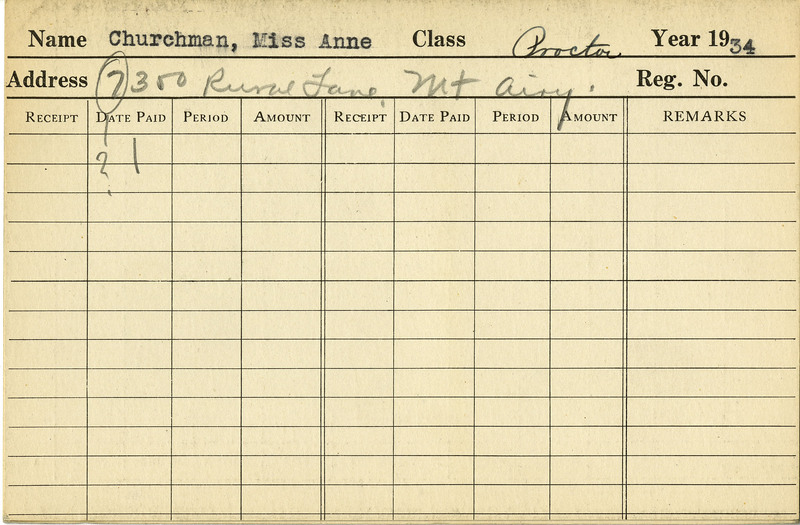 Name Churchman, Miss Anne Class Proctor Year 1934
Address 7300 Rural Lane, Mt Airy. Reg. No.
RECEIPT DATE PAID PERIOD AMOUNT RECEIPT DATE PAID PERIOD AMOUNT REMARKS
? 1